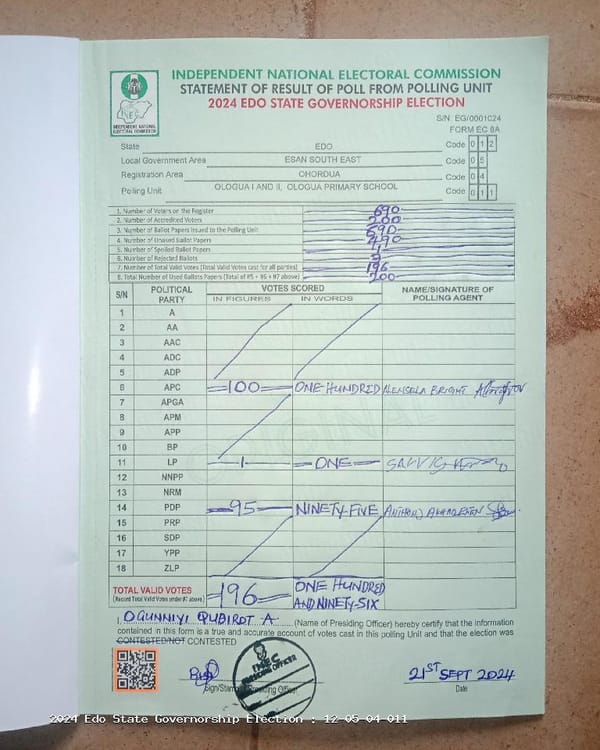 INDEPENDENT NATIONAL ELECTORAL COMMISSION
STATEMENT OF RESULT OF POLL FROM POLLING UNIT
2024 EDO STATE GOVERNORSHIP ELECTION
INEC
INDEPENDENT NATIONAL
ELECTORAL COMMISSION
S/N EG/0001024
FORM EC 8A
State EDO Code 0 1 2
Local Government Area ESAN SOUTH EAST Code 0 5
Registration Area OHORDUA Code 0 4
Polling Unit OLOGUA I AND II, OLOGUA PRIMARY SCHOOL Code 0 1 1
1. Number of Voters on the Register 690
2. Number of Accredited Voters 200
3. Number of Ballot Papers Issued to the Polling Unit 690
4. Number of Unused Ballot Papers 490
5. Number of Spoiled Ballot Papers 1
6. Number of Rejected Ballots 3
7. Number of Total Valid Votes (Total Valid Votes cast for all parties) 196
8. Total Number of Used Ballots Papers (Total of #5 + #6 + #7 above) 200
S/N POLITICAL PARTY VOTES SCORED NAME/SIGNATURE OF POLLING AGENT
IN FIGURES IN WORDS
1 A
2 AA
3 AAC
4 ADC
5 ADP
6 APC =100= ONE HUNDRED BRIGHT
7 APGA
8 APM
9 APP
10 BP
11 LP 1 =ONE=
12 NNPP
13 NRM
14 PDP =95= NINETY-FIVE
15 PRP
16 SDP
17 YPP
18 ZLP
TOTAL VALID VOTES =196= ONE HUNDRED
(Record Total Valid Votes under #7 above) AND NINETY-SIX
I, OGUNNIYI QUBIROT A (Name of Presiding Officer) hereby certify that the information
contained in this form is a true and accurate account of votes cast in this polling Unit and that the election was
CONTESTED/NOT CONTESTED
INEC
PRESIDING OFFICER
21ST SEPT 2024
Sign/Stamp Presiding Officer Date
2024 Edo State Governorship Election : 12-05-04-011